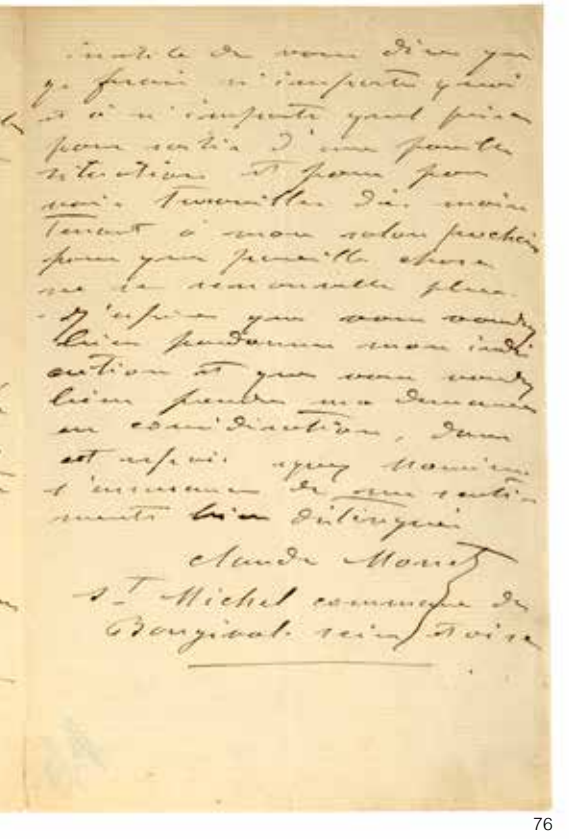 inutile de vous dire que
je ferais n'importe quoi
et à n'importe quel prix
pour sortir d'une pareille
situation et pour pou
voir travailler dès main
tenant à mon salon prochain
pour que pareille chose
ne se renouvelle plus.
J'espère que vous voudrez
bien pardonner mon indis
crétion et que vous voudrez
bien prendre ma demande
en considération, dans
cet espoir agréez Monsieur
l'assurance de mes senti
ments bien distingués
Claude Monet
St Michel commune de
Bougival seine et oise
76